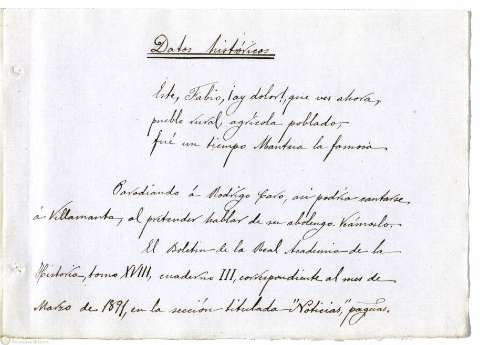 Datos históricos
Este, Fabio, ¡ay dolor!, que ves ahora,
pueblo rural, agrícola poblado,
fué un tiempo Mantua la famosa
Parodiando á Rodrigo Caro, así podría cantarse
á Villamanta, al pretender hablar de su abolengo. Veámoslo.
El Boletin de la Real Academia de la
Historia, tomo XVIII, cuaderno III, correspondiente al mes de
Marzo de 1891, en la sección titulada "Noticias", páginas.